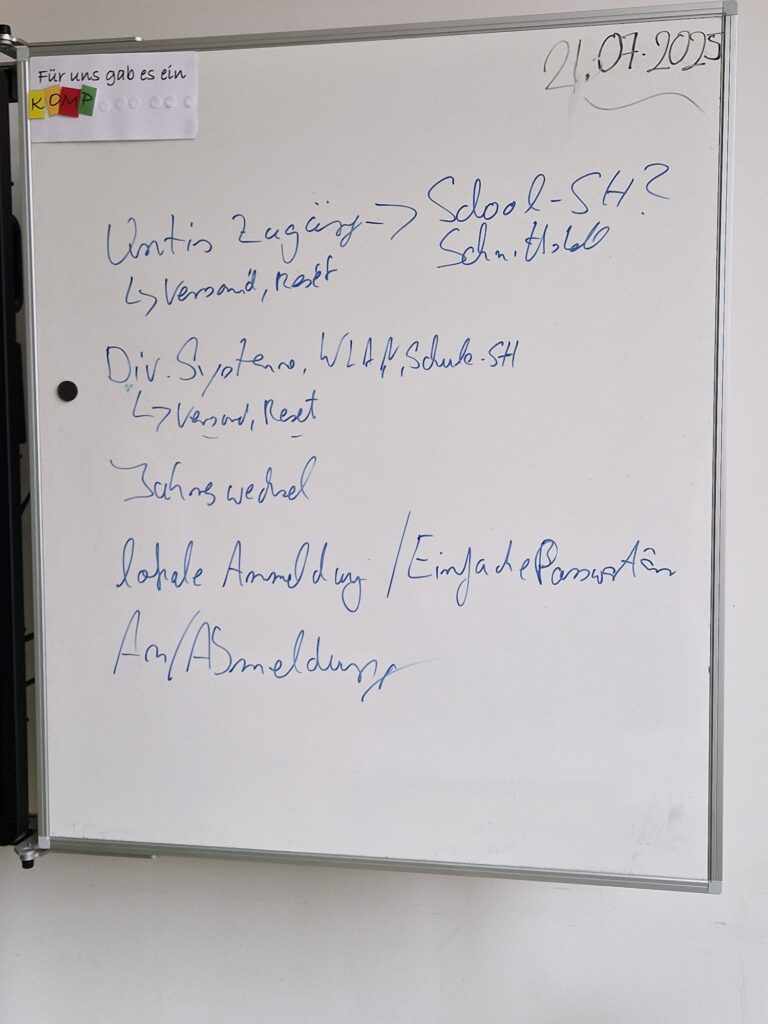 Für uns gab es ein
KOMP
21.07.2025
Untis Zugänge -> School-SH?
Schnittstelle
↳ Versand, Reset
Div. Systeme, WLAN, Schule-SH
↳ Versand, Reset
Jahreswechsel
lokale Anmeldung / Einfache Passwörter
An/Abmeldung